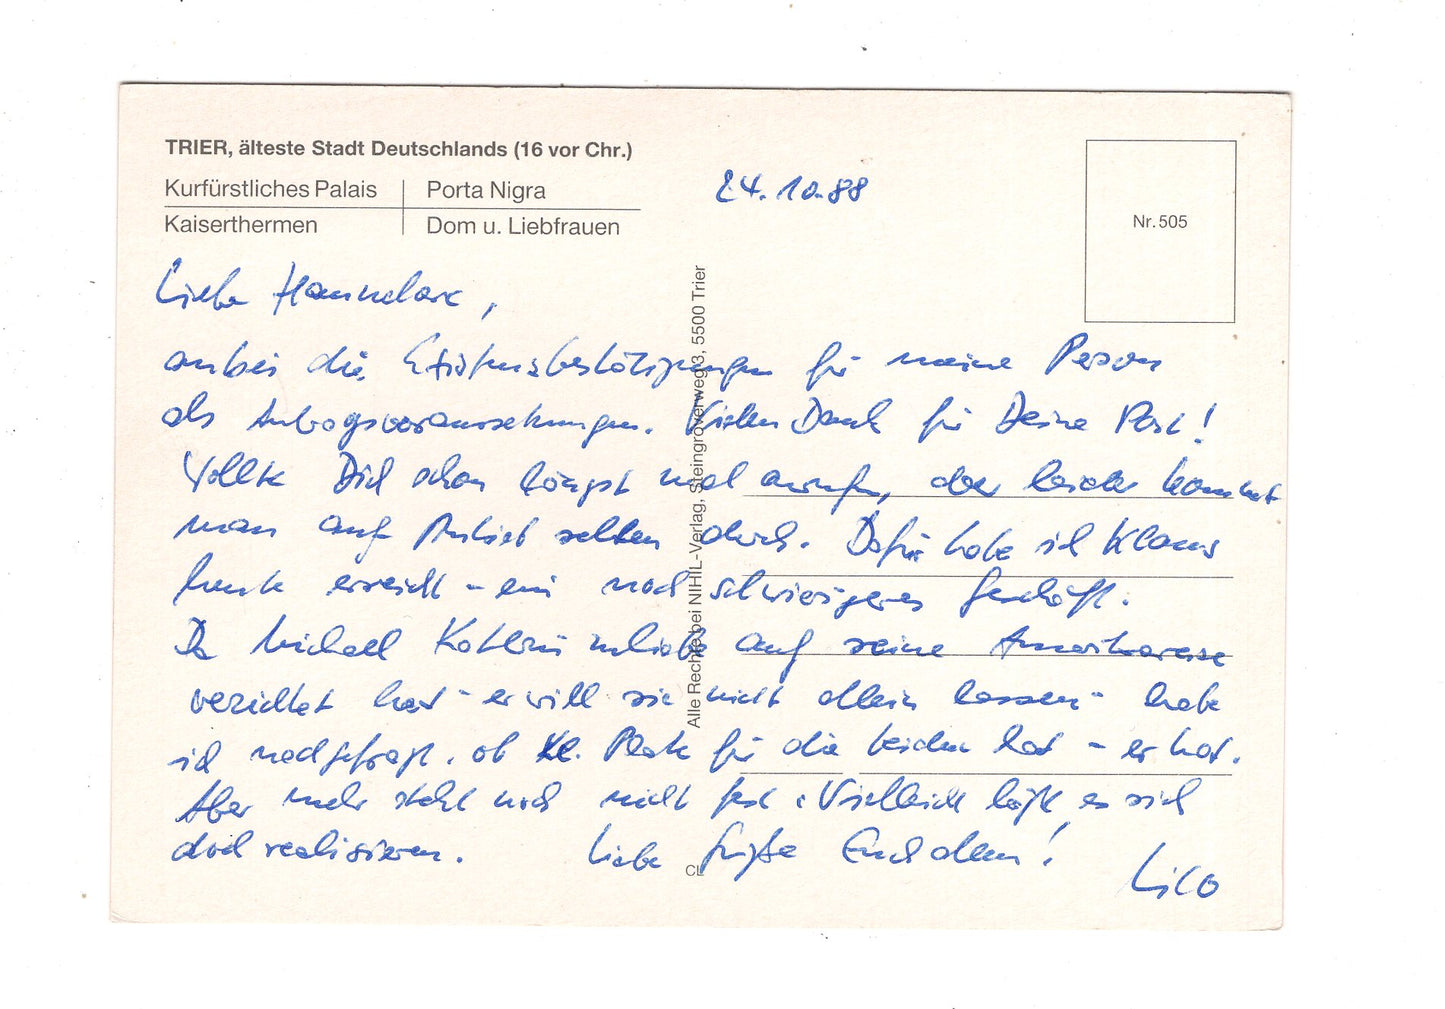 TRIER, älteste Stadt Deutschlands (16 vor Chr.)
Kurfürstliches Palais Porta Nigra
Kaiserthermen Dom u. Liebfrauen
24.10.88
Nr. 505
Liebe Hannelore,
anbei die Existenzbestätigungen für meine Person
als Antragsvoraussetzungen. Vielen Dank für Deine Post!
Wollte Dich schon längst mal anrufen, aber leider kommt
man auf Anhieb selten durch. Dafür habe ich Klaus
heute erreicht - ein noch schwierigeres Geschäft.
Da Michael zuliebe auf seine Amerikareise
verzichtet hat - er will sie nicht allein lassen - habe
ich nachgefragt, ob Kl. Platz für die beiden hat - er hat.
Aber mehr steht noch nicht fest. Vielleicht läßt es sich
doch realisieren. Liebe Grüße Euch allen!
Lico
Alle Rechte bei NIHIL-Verlag, Steingröverweg 3, 5500 Trier
CL